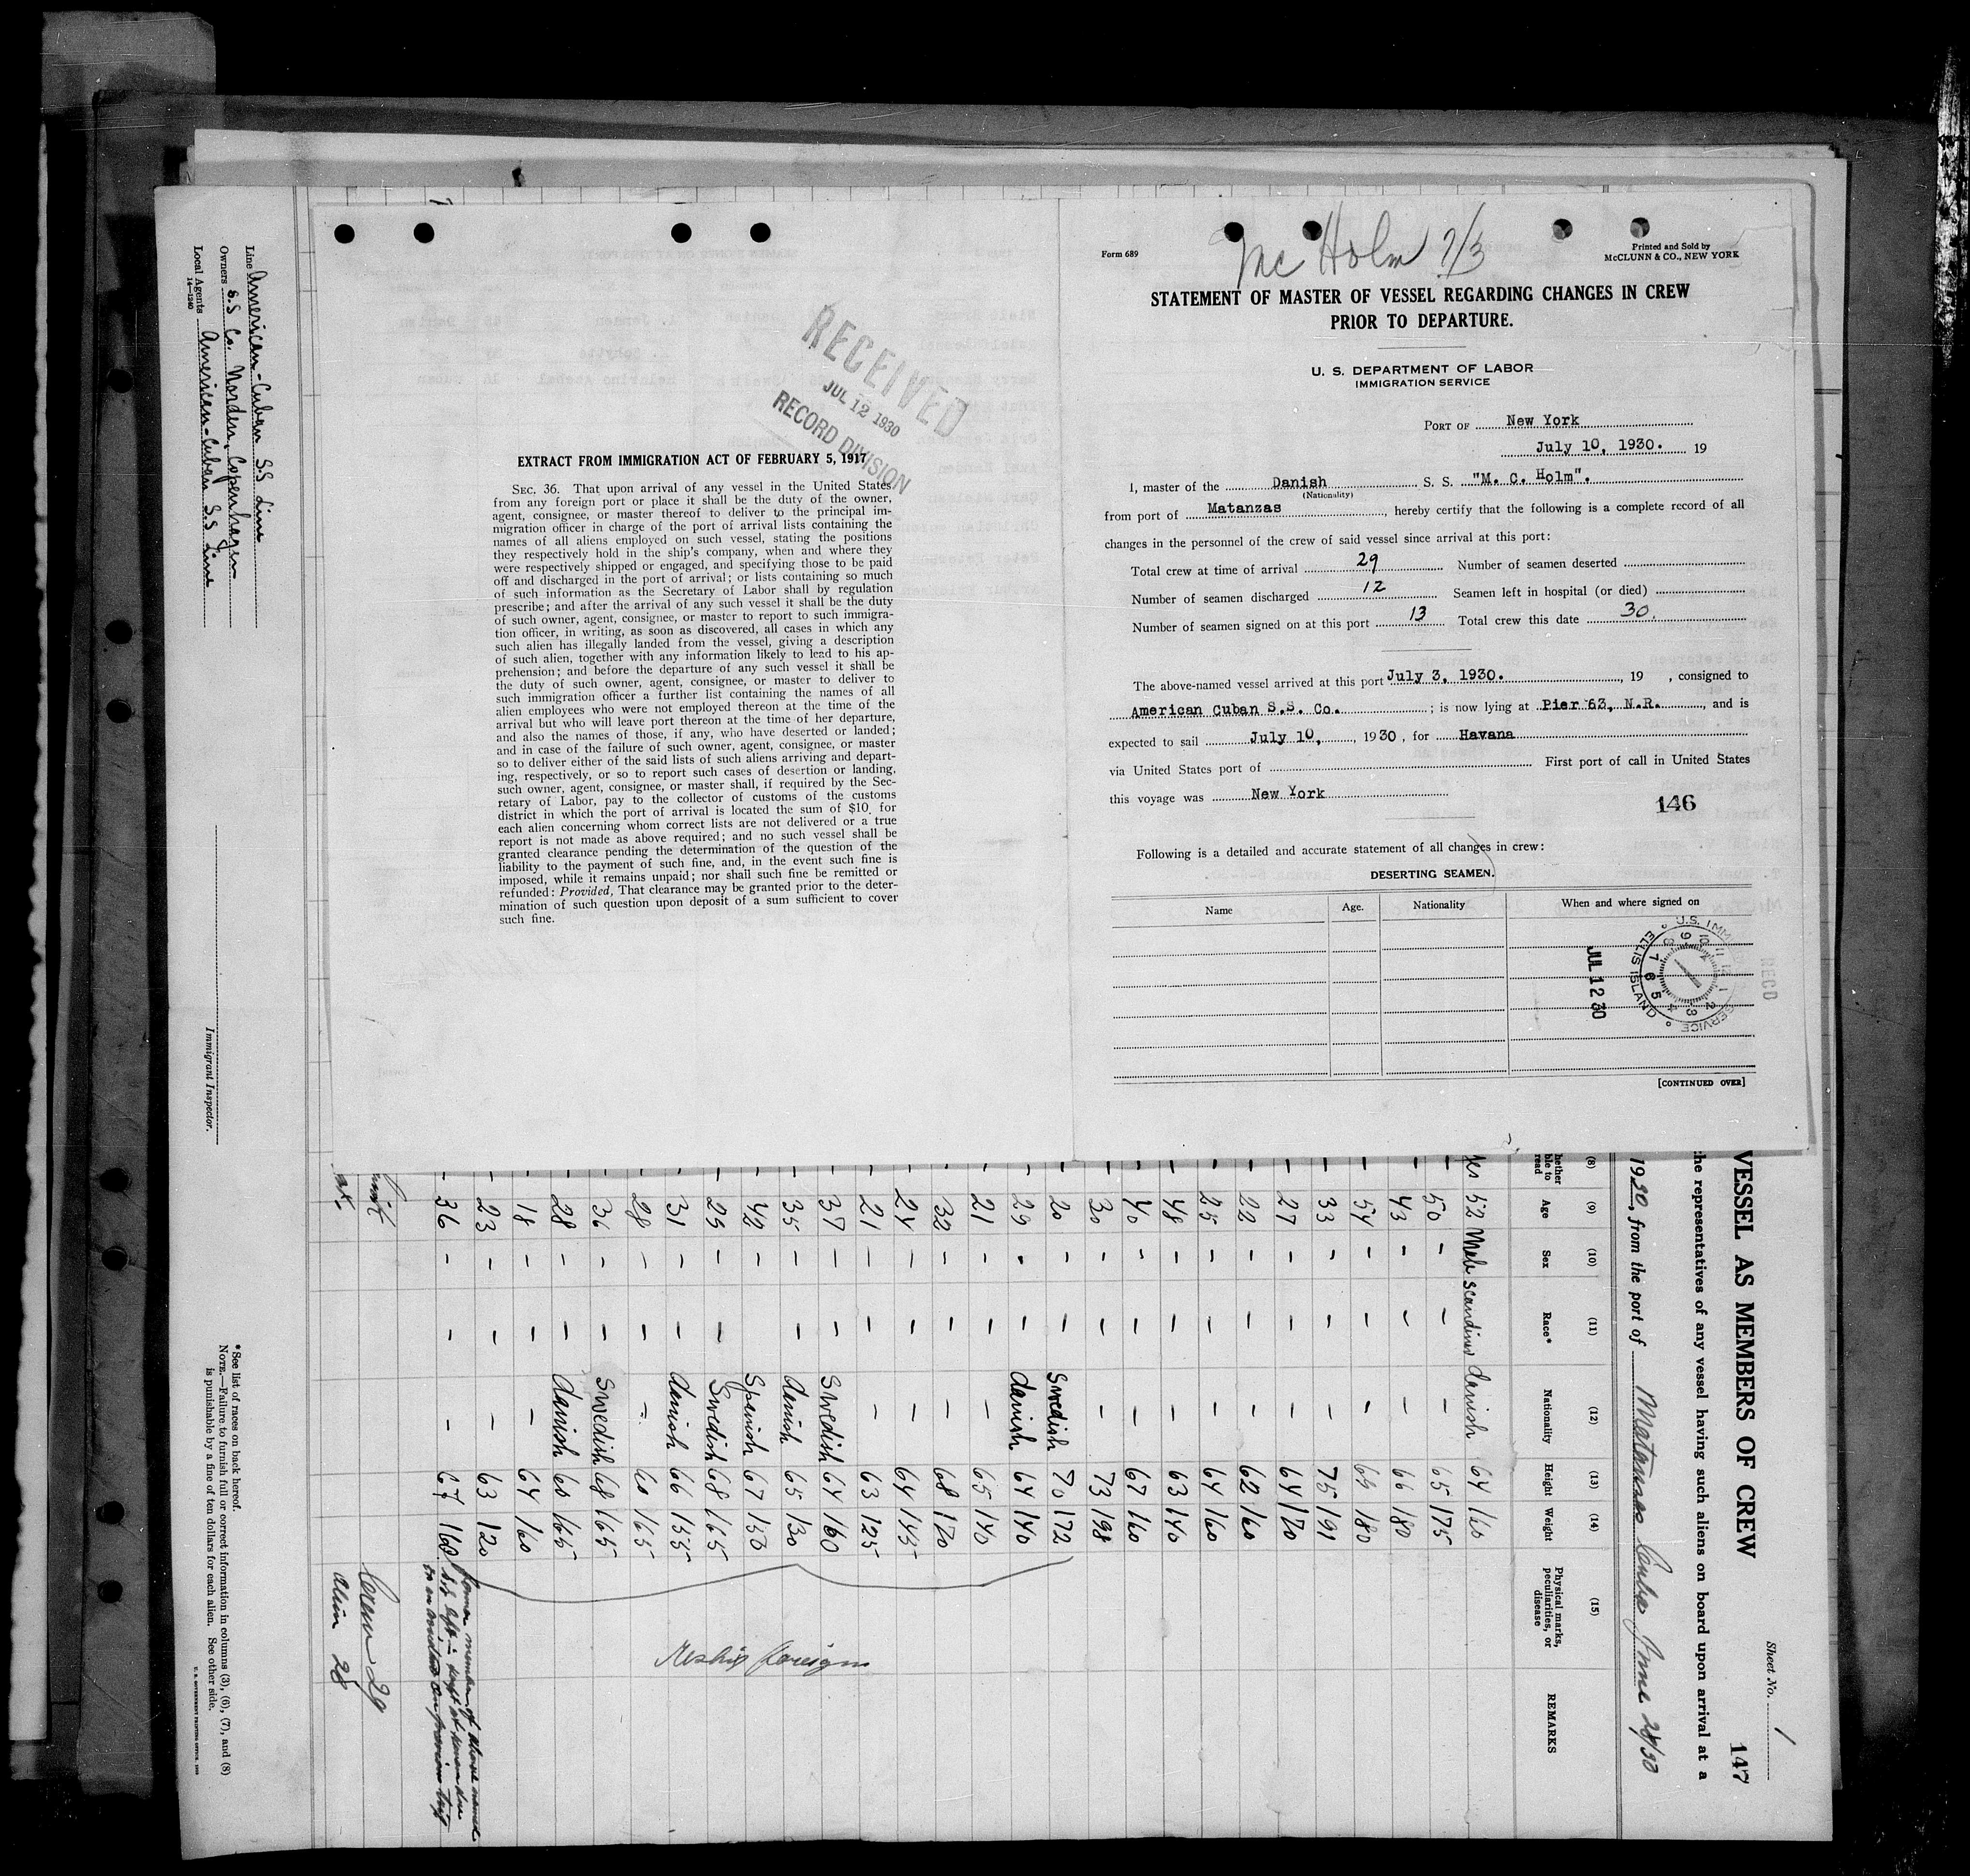 Mc Holm 7/3
Form 689
Printed and Sold by
McCLUNN & CO., NEW YORK
STATEMENT OF MASTER OF VESSEL REGARDING CHANGES IN CREW
PRIOR TO DEPARTURE.
U. S. DEPARTMENT OF LABOR
IMMIGRATION SERVICE
PORT OF New York
July 10, 1930. 19
I, master of the Danish S. S. "M. C. Holm".
(Nationality)
from port of Matanzas, hereby certify that the following is a complete record of all
changes in the personnel of the crew of said vessel since arrival at this port:
Total crew at time of arrival 29 Number of seamen deserted
Number of seamen discharged 12 Seamen left in hospital (or died)
Number of seamen signed on at this port 13 Total crew this date 30.
The above-named vessel arrived at this port July 3, 1930. , 19 , consigned to
American Cuban S.S. Co. ; is now lying at Pier 63, N.R. , and is
expected to sail July 10, , 1930, for Havana
via United States port of First port of call in United States
this voyage was New York
146
Following is a detailed and accurate statement of all changes in crew:
DESERTING SEAMEN.
Name Age. Nationality When and where signed on
U.S. IMM SERVICE
ELLIS ISLAND
JUL 12 30
RECD
[CONTINUED OVER]
RECEIVED
JUL 12 1930
RECORD DIVISION
EXTRACT FROM IMMIGRATION ACT OF FEBRUARY 5, 1917
SEC. 36. That upon arrival of any vessel in the United States
from any foreign port or place it shall be the duty of the owner,
agent, consignee, or master thereof to deliver to the principal im-
migration officer in charge of the port of arrival lists containing the
names of all aliens employed on such vessel, stating the positions
they respectively hold in the ship's company, when and where they
were respectively shipped or engaged, and specifying those to be paid
off and discharged in the port of arrival; or lists containing so much
of such information as the Secretary of Labor shall by regulation
prescribe; and after the arrival of any such vessel it shall be the duty
of such owner, agent, consignee, or master to report to such immigra-
tion officer, in writing, as soon as discovered, all cases in which any
such alien has illegally landed from the vessel, giving a description
of such alien, together with any information likely to lead to his ap-
prehension; and before the departure of any such vessel it shall be
the duty of such owner, agent, consignee, or master to deliver to
such immigration officer a further list containing the names of all
alien employees who were not employed thereon at the time of the
arrival but who will leave port thereon at the time of her departure,
and also the names of those, if any, who have deserted or landed;
and in case of the failure of such owner, agent, consignee, or master
so to deliver either of the said lists of such aliens arriving and depart-
ing, respectively, or so to report such cases of desertion or landing,
such owner, agent, consignee, or master shall, if required by the Sec-
retary of Labor, pay to the collector of customs of the customs
district in which the port of arrival is located the sum of $10 for
each alien concerning whom correct lists are not delivered or a true
report is not made as above required; and no such vessel shall be
granted clearance pending the determination of the question of the
liability to the payment of such fine, and, in the event such fine is
imposed, while it remains unpaid; nor shall such fine be remitted or
refunded: Provided, That clearance may be granted prior to the deter-
mination of such question upon deposit of a sum sufficient to cover
such fine.
Sheet No. 1
147
VESSEL AS MEMBERS OF CREW
the representatives of any vessel having such aliens on board upon arrival at a
1930, from the port of Matanzas Cuba June 28/30
(8) (9) (10) (11) (12) (13) (14) (15)
hether ble to read Age Sex Race* Nationality Height Weight Physical marks, peculiarities, or disease REMARKS
yes 52 Male scandinav danish 64 160
50 - - - 65 175
43 - - - 66 180
54 - - - 69 180
33 - - - 75 191
27 - - - 64 170
22 - - - 62 160
25 - - - 64 160
48 - - - 63 140
40 - - - 67 160
30 - - - 73 198
20 - - Swedish 70 172
29 - - danish 64 140
21 - - - 65 140
32 - - - 68 170
24 - - - 64 145
21 - - - 63 125
37 - - Swedish 64 160
35 - - danish 65 130
42 - Spanish 67 150
29 - - Swedish 68 165
31 - - danish 66 155
28 - - - 60 165
36 - - Swedish 68 165
28 - - danish 60 165
18 - - - 64 160
23 - - - 63 120
36 - - - 67 160
Reship foreign
Crew 29
alien 28
Line American-Cuban S.S Line
Owners S.S Co. Norden, Copenhagen
Local Agents American-Cuban S.S Line
14—1240
Immigrant Inspector.
*See list of races on back hereof.
NOTE.—Failure to furnish full or correct information in columns (3), (6), (7), and (8)
is punishable by a fine of ten dollars for each alien. See other side.